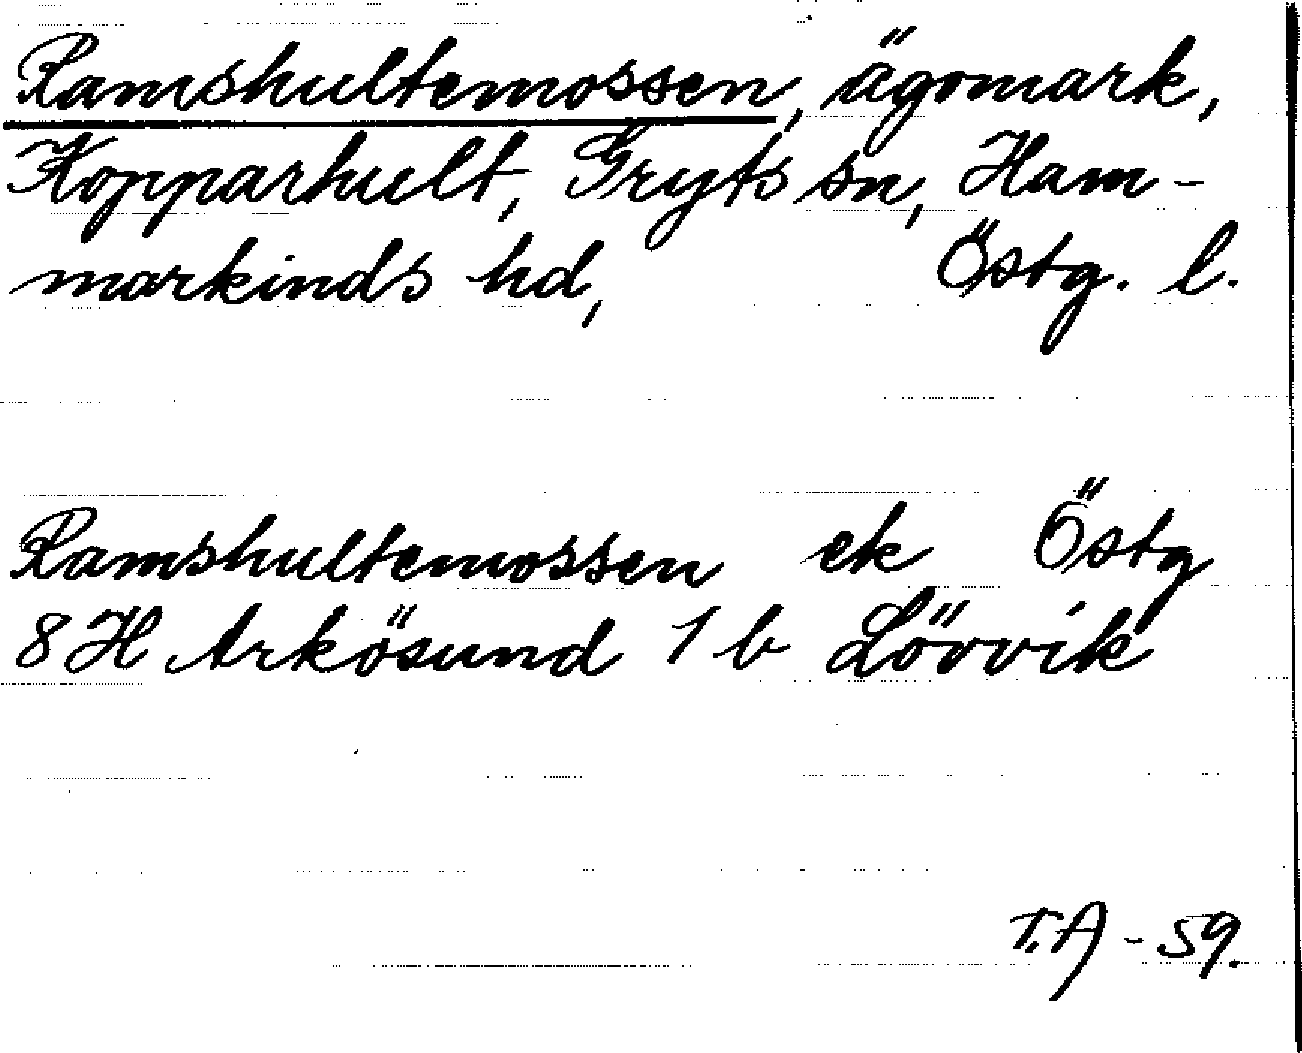 Ramshultemossen, ägomark,
Kopparhult, Gryts sn, Ham-
markinds hd, Östg. l.
Ramshultemossen ek Östg
8H Arkösund 1b Lövvik
T.A - 59.